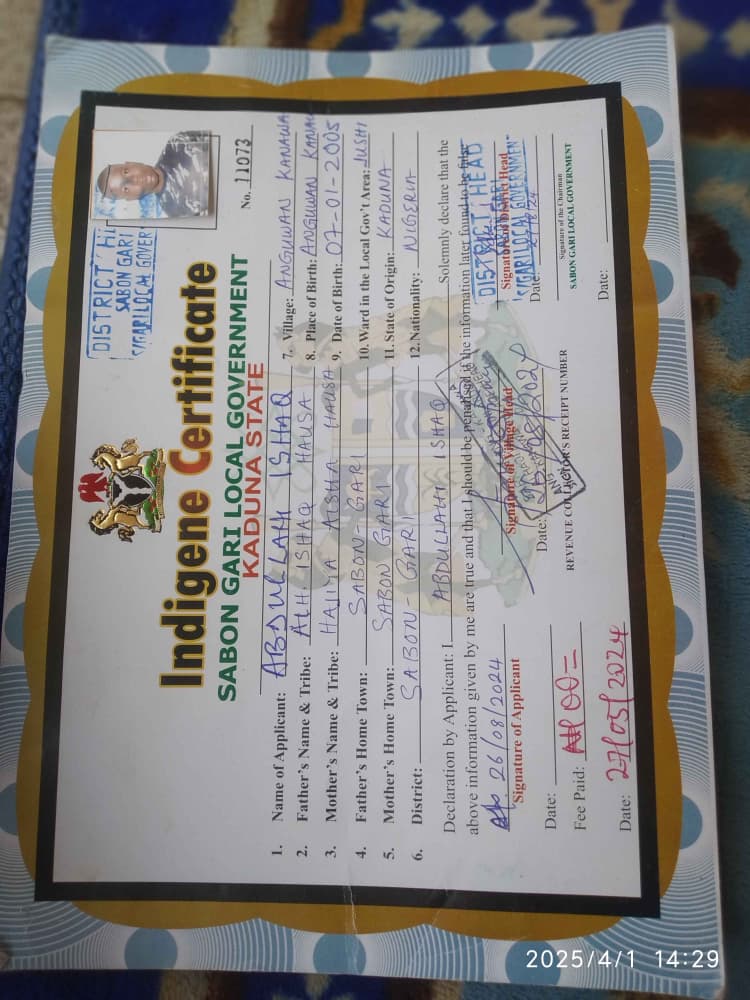 Indigene Certificate
SABON GARI LOCAL GOVERNMENT
KADUNA STATE
No. 11073
DISTRICT
SABON GARI
S/GARI LOCAL GOVER
1. Name of Applicant: ABDULLAHI ISHAQ
2. Father's Name & Tribe: ALH. ISHAQ HAUSA
3. Mother's Name & Tribe: HAJIYA AISHA HAUSA
4. Father's Home Town: SABON GARI
5. Mother's Home Town: SABON GARI
6. District: SABON-GARI
7. Village: ANGUWAN KANAWA
8. Place of Birth: ANGUWAN
9. Date of Birth: 07-01-2005
10. Ward in the Local Gov't Area: JUSHI
11. State of Origin: KADUNA
12. Nationality: NIGERIA
Declaration by Applicant: I ABDULLAHI ISHAQ Solemnly declare that the
above information given by me are true and that I should be penalised if the information later found to be false
26/08/2024
Signature of Applicant
Date:
Fee Paid:
Date: 27/05/2024
Signature of Village Head
Date:
REVENUE COLLECTOR'S RECEIPT NUMBER
DISTRICT HEAD
S/GARI LOCAL GOVERNMENT
Signature of District Head
Date:
Signature of the Chairman
SABON GARI LOCAL GOVERNMENT
Date:
2025/4/1 14:29